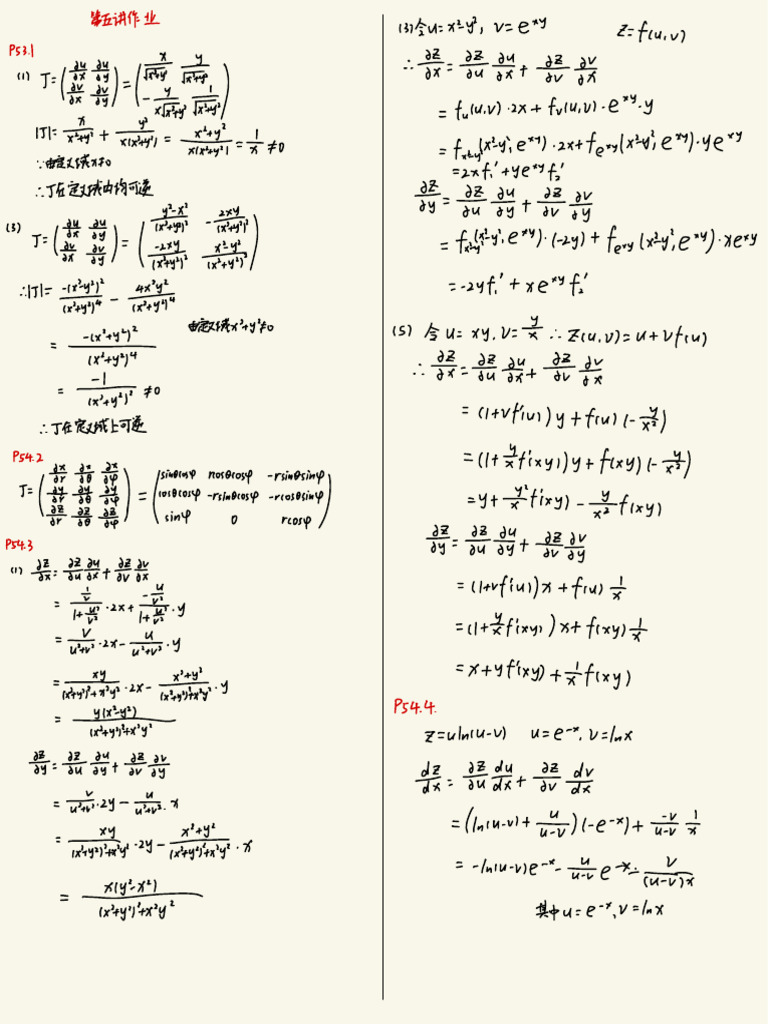 第五讲作业
P53.1
(1) J=(∂u/∂x ∂u/∂y; ∂v/∂x ∂v/∂y)=(x/√(x²+y²) y/√(x²+y²); -y/(x√(x²+y²)) 1/√(x²+y²))
|J|=x/(x²+y²)+y²/(x(x²+y²))=(x²+y²)/(x(x²+y²))=1/x≠0
∵由定义域x≠0
∴J在定义域内均可逆
(3) J=(∂u/∂x ∂u/∂y; ∂v/∂x ∂v/∂y)=((y²-x²)/(x²+y²)² -2xy/(x²+y²)²; -2xy/(x²+y²)² (x²-y²)/(x²+y²)²)
∴|J|=-(x²-y²)²/(x²+y²)⁴ - 4x²y²/(x²+y²)⁴
=-(x²+y²)²/(x²+y²)⁴ 由定义域x²+y²≠0
=-1/(x²+y²)²≠0
∴J在定义域上可逆
P54.2
J=(∂x/∂r ∂x/∂θ ∂x/∂φ; ∂y/∂r ∂y/∂θ ∂y/∂φ; ∂z/∂r ∂z/∂θ ∂z/∂φ)=(sinθcosφ rcosθcosφ -rsinθsinφ; cosθcosφ -rsinθcosφ -rcosθsinφ; sinφ 0 rcosφ)
P54.3
(1) ∂z/∂x=∂z/∂u ∂u/∂x+∂z/∂v ∂v/∂x
=(1/v)/(1+u²/v²)·2x+(-u/v²)/(1+u²/v²)·y
=v/(u²+v²)·2x-u/(u²+v²)·y
=xy/((x²+y²)²+x²y²)·2x-(x²+y²)/((x²+y²)²+x²y²)·y
=y(x²-y²)/((x²+y²)²+x²y²)
∂z/∂y=∂z/∂u ∂u/∂y+∂z/∂v ∂v/∂y
=v/(u²+v²)·2y-u/(u²+v²)·x
=xy/((x²+y²)²+x²y²)·2y-(x²+y²)/((x²+y²)²+x²y²)·x
=x(y²-x²)/((x²+y²)²+x²y²)
(3) 令u=x²-y², v=e^(xy) z=f(u,v)
∴∂z/∂x=∂z/∂u ∂u/∂x+∂z/∂v ∂v/∂x
=f_u(u,v)·2x+f_v(u,v)·e^(xy)·y
=f_(x²-y²)(x²-y²,e^(xy))·2x+f_(e^(xy))(x²-y²,e^(xy))·ye^(xy)
=2xf₁'+ye^(xy)f₂'
∂z/∂y=∂z/∂u ∂u/∂y+∂z/∂v ∂v/∂y
=f_(x²-y²)(x²-y²,e^(xy))·(-2y)+f_(e^(xy))(x²-y²,e^(xy))·xe^(xy)
=-2yf₁'+xe^(xy)f₂'
(5) 令u=xy, v=y/x ∴z(u,v)=u+vf(u)
∴∂z/∂x=∂z/∂u ∂u/∂x+∂z/∂v ∂v/∂x
=(1+vf'(u))y+f(u)(-y/x²)
=(1+y/x f'(xy))y+f(xy)(-y/x²)
=y+y²/x f'(xy)-y/x² f(xy)
∂z/∂y=∂z/∂u ∂u/∂y+∂z/∂v ∂v/∂y
=(1+vf'(u))x+f(u)1/x
=(1+y/x f'(xy))x+f(xy)1/x
=x+yf'(xy)+1/x f(xy)
P54.4.
z=uln(u-v) u=e^(-x), v=lnx
dz/dx=∂z/∂u du/dx+∂z/∂v dv/dx
=(ln(u-v)+u/(u-v))(-e^(-x))+(-v)/(u-v) 1/x
=-ln(u-v)e^(-x)-u/(u-v) e^(-x)-v/((u-v)x)
其中u=e^(-x), v=lnx